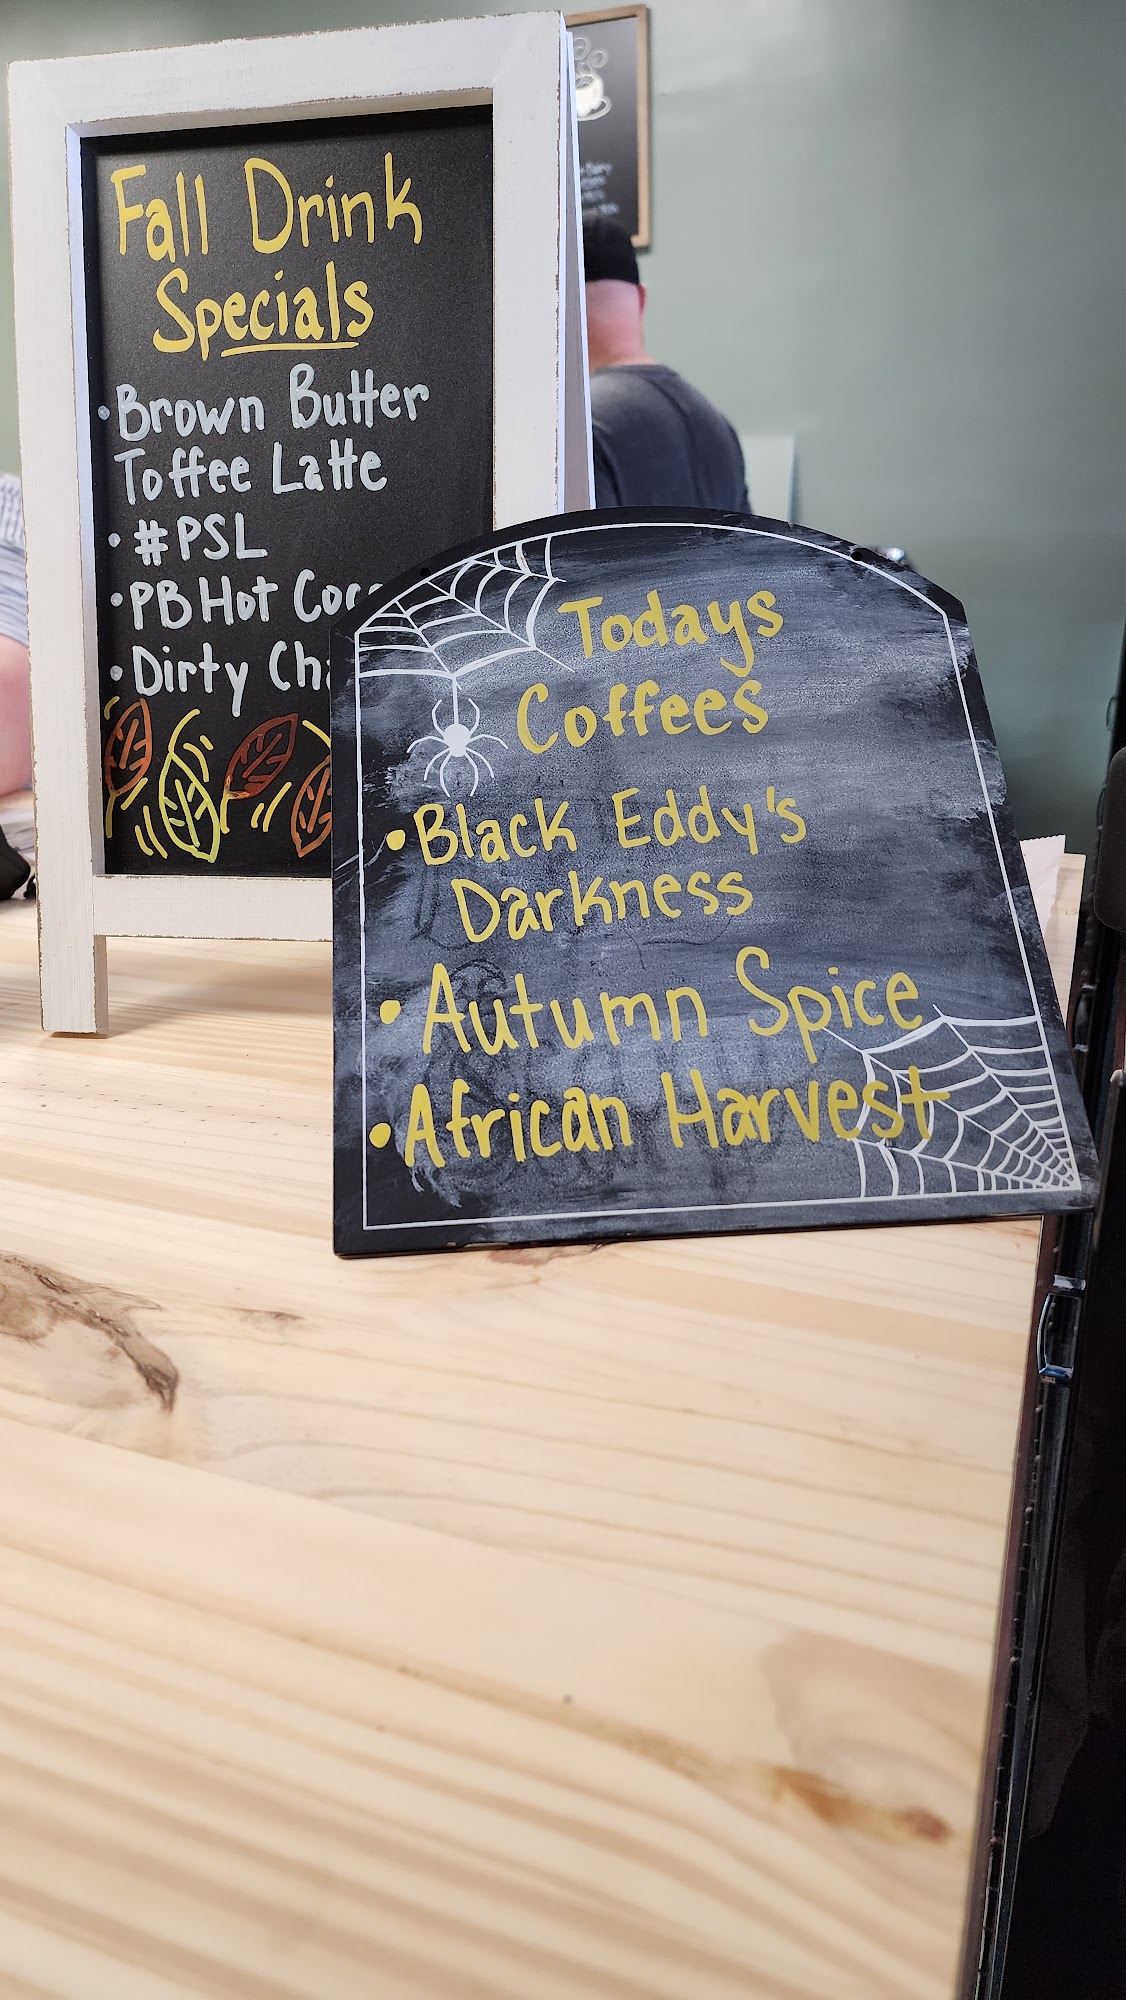 Fall Drink
Specials
•Brown Butter
Toffee Latte
•#PSL
•PB Hot
•Dirty
Todays
Coffees
•Black Eddy's
Darkness
•Autumn Spice
•African Harvest